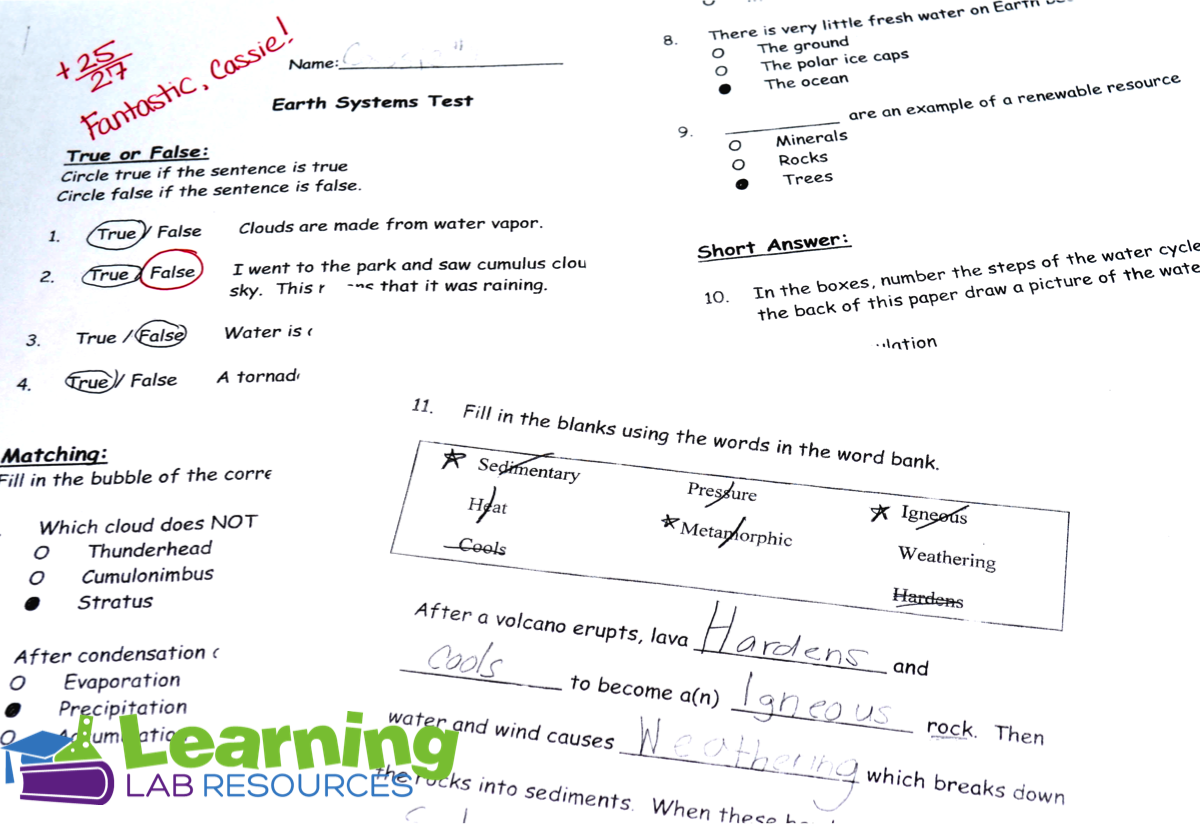 +25
27
Fantastic, Cassie!
Name:
Earth Systems Test
True or False:
Circle true if the sentence is true
Circle false if the sentence is false.
1. True / False Clouds are made from water vapor.
2. True / False I went to the park and saw cumulus
sky. This that it was raining.
3. True / False Water is
4. True / False A
Matching:
Fill in the bubble of the
Which cloud does NOT
Thunderhead
Cumulonimbus
Stratus
After condensation
Evaporation
Precipitation
8. There is very little fresh water on Earth
The ground
The polar ice caps
The ocean
9. ____________ are an example of a renewable resource
Minerals
Rocks
Trees
Short Answer:
10. In the boxes, number the steps of the water cycle
the back of this paper draw a picture of the
11. Fill in the blanks using the words in the word bank.
Sedimentary Pressure Igneous
Heat Metamorphic Weathering
Cools Hardens
After a volcano erupts, lava Hardens and
cools to become a(n) Igneous rock. Then
water and wind causes Weathering which breaks down
the rocks into sediments. When these
Learning
LAB RESOURCES